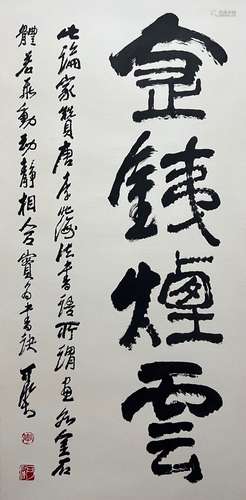 金銕煙雲
此論家贊唐李北海法書語所謂畫如金石
體若飛動動靜相合實為書訣可染